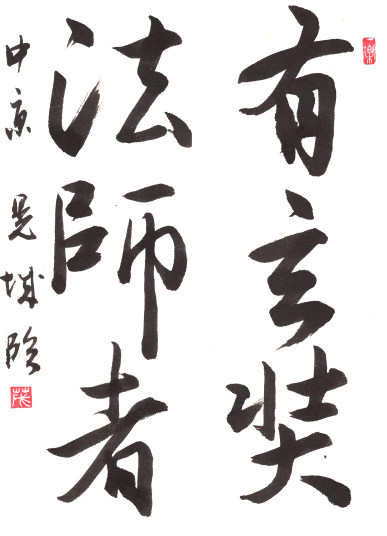 有玄奘
法師者
中京 晃城臨